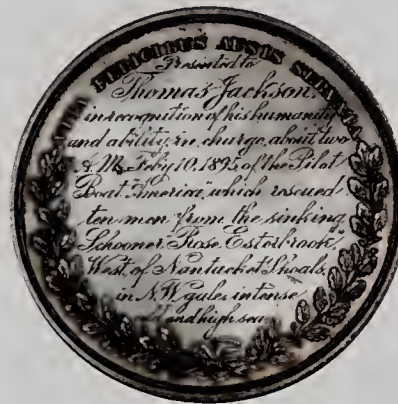 VITA FELICIBUS AUSIS SERVATA
Presented to
Thomas Jackson,
in recognition of his humanity
and ability, in charge, about two
A.M. Feb'y 10. 1895, of the Pilot
Boat "America", which rescued
ten men from the sinking
Schooner "Rose Esterbrook,"
West of Nantucket Shoals,
in N.W. gales intense
and high sea